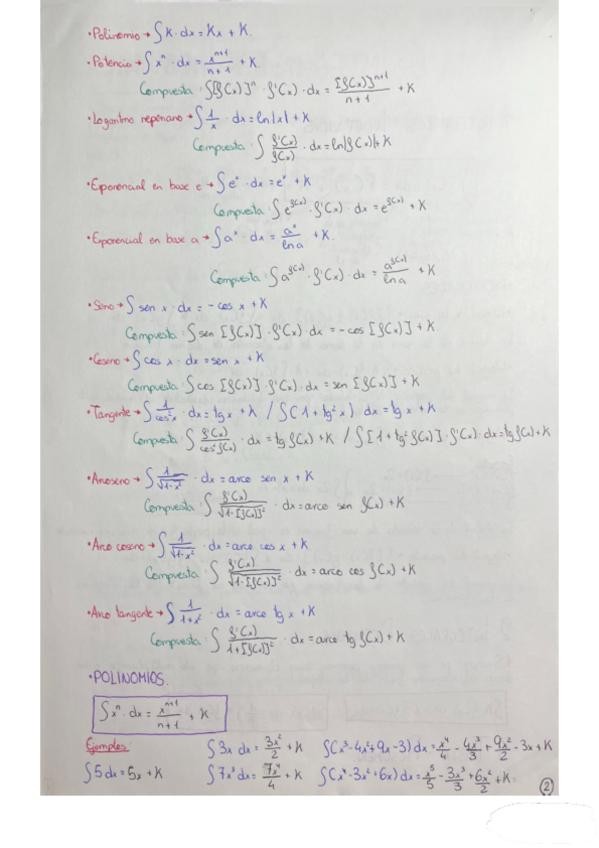 ·Polinomio → ∫K·dx = Kx + K.
·Potencia → ∫xⁿ·dx = xⁿ⁺¹/(n+1) + K.
Compuesta: ∫[f(x)]ⁿ·f'(x)·dx = [f(x)]ⁿ⁺¹/(n+1) + K
·Logaritmo neperiano → ∫1/x·dx = ln|x| + K
Compuesta: ∫f'(x)/f(x)·dx = ln|f(x)| + K
·Exponencial en base e → ∫eˣ·dx = eˣ + K
Compuesta: ∫e^f(x)·f'(x)·dx = e^f(x) + K
·Exponencial en base a → ∫aˣ·dx = aˣ/ln a + K.
Compuesta: ∫a^f(x)·f'(x)·dx = a^f(x)/ln a + K
·Seno → ∫sen x·dx = -cos x + K
Compuesta: ∫sen [f(x)]·f'(x)·dx = -cos [f(x)] + K
·Coseno → ∫cos x·dx = sen x + K
Compuesta: ∫cos [f(x)]·f'(x)·dx = sen [f(x)] + K
·Tangente → ∫1/cos²x·dx = tg x + K / ∫(1 + tg²x) dx = tg x + K
Compuesta: ∫f'(x)/cos²f(x)·dx = tg f(x) + K / ∫[1 + tg²f(x)]·f'(x)·dx = tg f(x) + K
·Arcoseno → ∫1/√(1-x²)·dx = arco sen x + K
Compuesta: ∫f'(x)/√(1-[f(x)]²)·dx = arco sen f(x) + K
·Arco coseno → ∫1/√(1-x²)·dx = arco cos x + K
Compuesta: ∫f'(x)/√(1-[f(x)]²)·dx = arco cos f(x) + K
·Arco tangente → ∫1/(1+x²)·dx = arco tg x + K
Compuesta: ∫f'(x)/(1+[f(x)]²)·dx = arco tg f(x) + K
·POLINOMIOS.
∫xⁿ·dx = xⁿ⁺¹/(n+1) + K
Ejemplos:
∫3x dx = 3x²/2 + K ∫(x³-4x²+9x-3) dx = x⁴/4 - 4x³/3 + 9x²/2 - 3x + K
∫5 dx = 5x + K ∫7x³ dx = 7x⁴/4 + K ∫(x⁴-3x²+6x) dx = x⁵/5 - 3x³/3 + 6x²/2 + K.
2